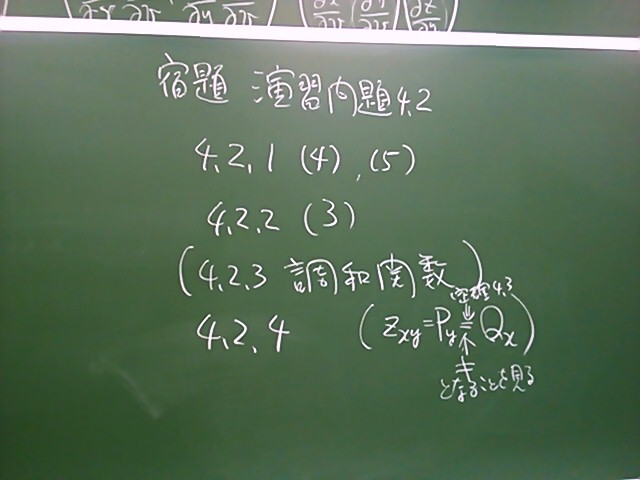 宿題 演習問題4.2
4.2.1 (4), (5)
4.2.2 (3)
(4.2.3 調和関数)
定理4.3
4.2.4 (Zxy=Py=Qx)
≠
となることを見る